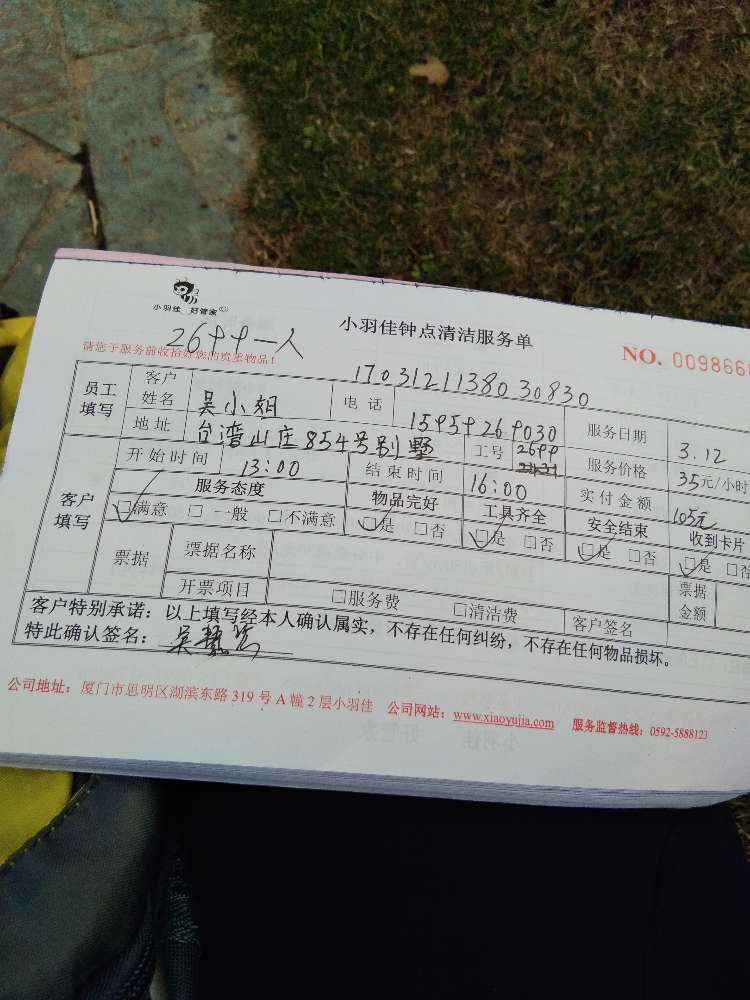 小羽佳 好管家
小羽佳钟点清洁服务单
2699一人
请您于服务前收拾好您的贵重物品！
NO. 0098668
1703121138030830
员工填写 客户姓名 吴小姐 电话 15959269030 服务日期 3.12
地址 台湾山庄854号别墅 工号 2699 服务价格 35元/小时
客户填写 开始时间 13:00 结束时间 16:00 实付金额 105元
服务态度 物品完好 工具齐全 安全结束 收到卡片
☑满意 □一般 □不满意 ☑是 □否 ☑是 □否 ☑是 □否 ☑是 □否
票据 票据名称 票据金额
开票项目 □服务费 □清洁费 客户签名
客户特别承诺：以上填写经本人确认属实，不存在任何纠纷，不存在任何物品损坏。
特此确认签名：吴
公司地址：厦门市思明区湖滨东路 319 号 A 幢 2 层小羽佳 公司网站：www.xiaoyujia.com 服务监督热线：0592-5888123